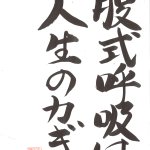 腹式呼吸は
人生のカギ